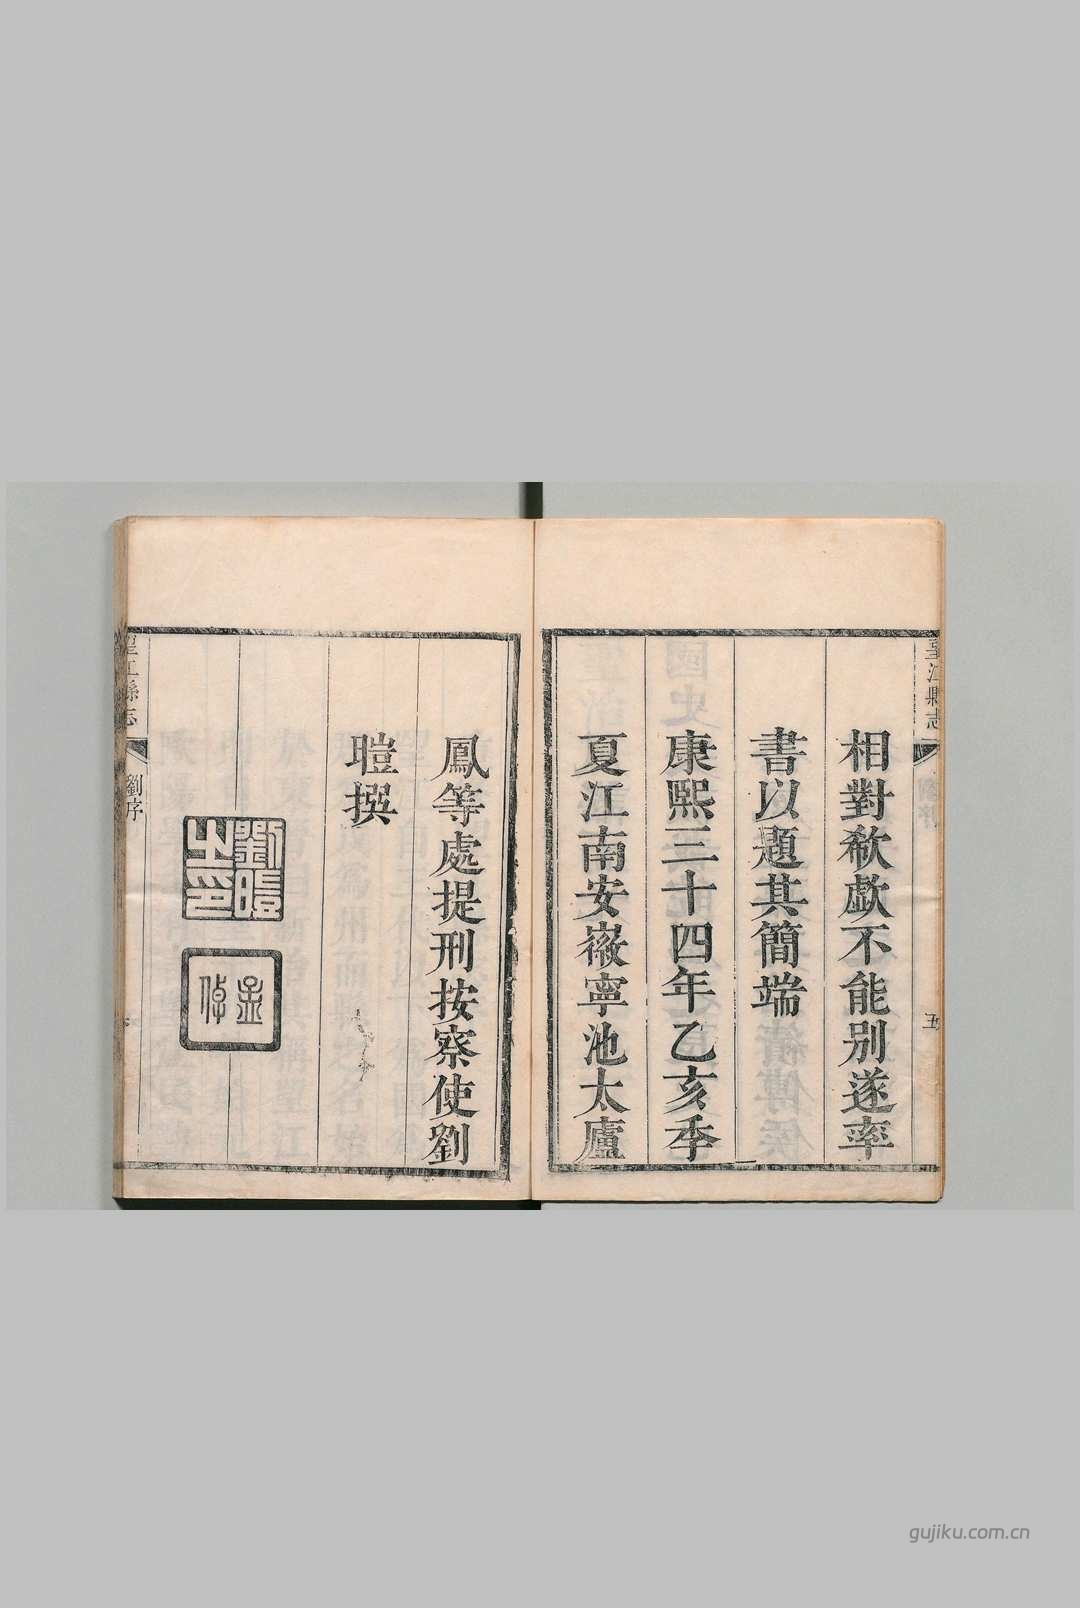 望江縣志
五
相對欷歔不能别遂率
書以題其簡端
康熙三十四年乙亥季
夏江南安徽寧池太廬
鳳等處提刑按察使劉
暟撰
劉暟
之印
望江縣志
劉序
gujiku.com.cn